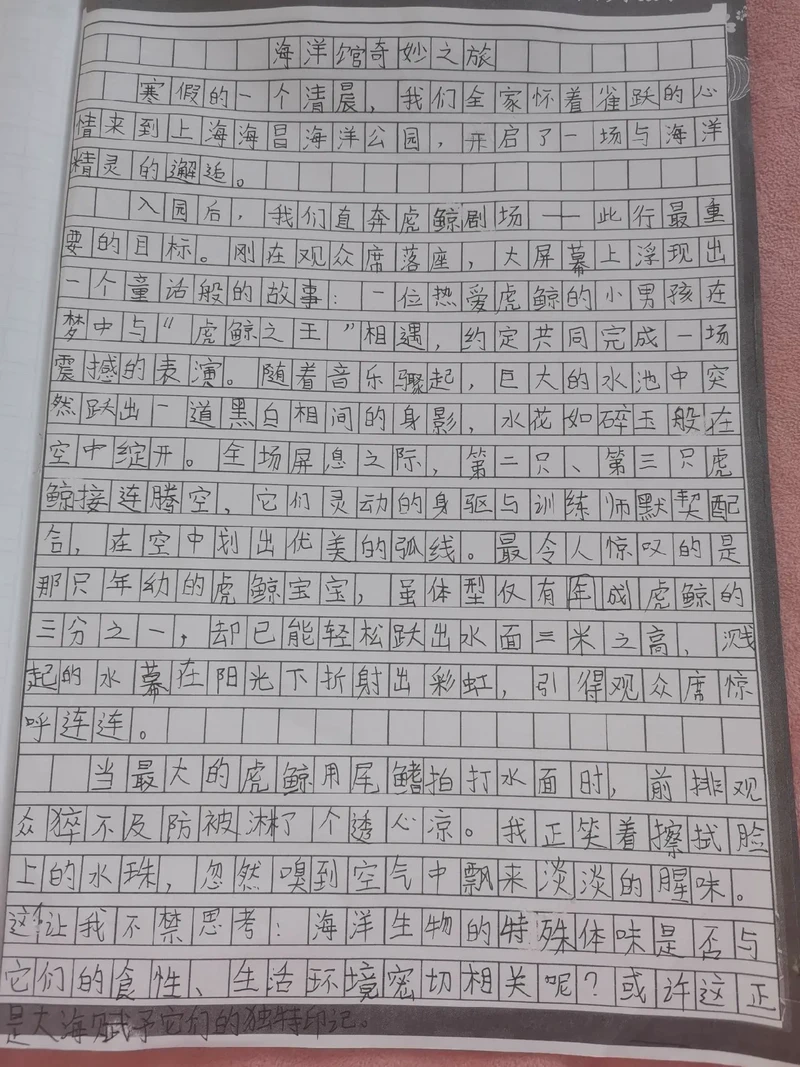 海洋馆奇妙之旅
寒假的一个清晨，我们全家怀着雀跃的心
情来到上海海昌海洋公园，开启了一场与海洋
精灵的邂逅。
入园后，我们直奔虎鲸剧场——此行最重
要的目标。刚在观众席落座，大屏幕上浮现出
一个童话般的故事：一位热爱虎鲸的小男孩在
梦中与“虎鲸之王”相遇，约定共同完成一场
震撼的表演。随着音乐骤起，巨大的水池中突
然跃出一道黑白相间的身影，水花如碎玉般在
空中绽开。全场屏息之际，第二只、第三只虎
鲸接连腾空，它们灵动的身躯与训练师默契配
合，在空中划出优美的弧线。最令人惊叹的是
那只年幼的虎鲸宝宝，虽体型仅有年成虎鲸的
三分之一，却已能轻松跃出水面三米之高，溅
起的水幕在阳光下折射出彩虹，引得观众席惊
呼连连。
当最大的虎鲸用尾鳍拍打水面时，前排观
众猝不及防被淋了个透心凉。我正笑着擦拭脸
上的水珠，忽然嗅到空气中飘来淡淡的腥味。
这让我不禁思考：海洋生物的特殊体味是否与
它们的食性、生活环境密切相关呢？或许这正
是大海赋予它们的独特印记。